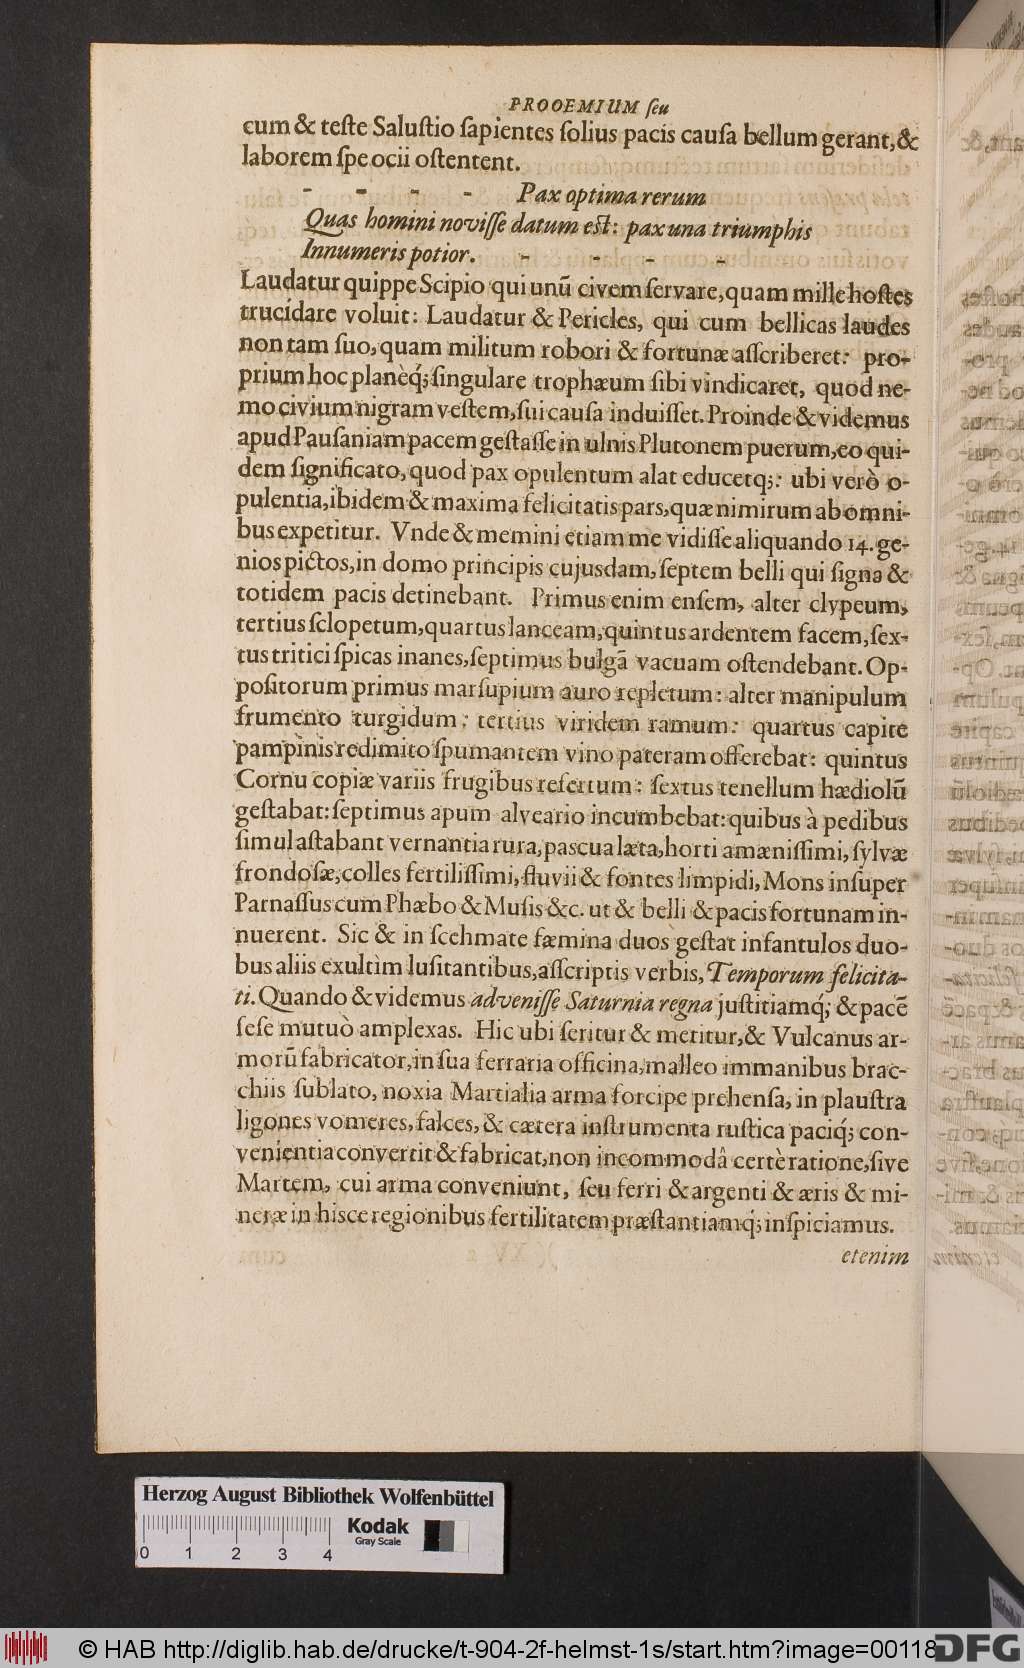 PROOEMIUM ſeu
cum & teſte Saluſtio ſapientes ſolius pacis cauſa bellum gerant, &
laborem ſpe ocii oſtentent.
- - - - Pax optima rerum
Quas homini noviſſe datum est: pax una triumphis
Innumeris potior. - - - -
Laudatur quippe Scipio qui unū civem ſervare, quam mille hoſtes
trucidare voluit: Laudatur & Pericles, qui cum bellicas laudes
non tam ſuo, quam militum robori & fortunæ aſſcriberet: pro-
prium hoc planèq́; ſingulare trophæum ſibi vindicaret, quod ne-
mo civium nigram veſtem, ſui cauſa induiſſet. Proinde & videmus
apud Pauſaniam pacem geſtaſſe in ulnis Plutonem puerum, eo qui-
dem ſignificato, quod pax opulentum alat educetq;: ubi verò o-
pulentia, ibidem & maxima felicitatis pars, quæ nimirum ab omni-
bus expetitur. Vnde & memini etiam me vidiſſe aliquando 14. ge-
nios pictos, in domo principis cujusdam, ſeptem belli qui ſigna &
totidem pacis detinebant. Primus enim enſem, alter clypeum,
tertius ſclopetum, quartus lanceam, quintus ardentem facem, ſex-
tus tritici ſpicas inanes, ſeptimus bulgā vacuam oſtendebant. Op-
poſitorum primus marſupium auro repletum: alter manipulum
frumento turgidum: tertius viridem ramum: quartus capite
pampinis redimito ſpumantem vino pateram offerebat: quintus
Cornu copiæ variis frugibus refertum: ſextus tenellum hædiolū
geſtabat: ſeptimus apum alveario incumbebat: quibus à pedibus
ſimul aſtabant vernantia rura, paſcua læta, horti amæniſſimi, ſylvæ
frondoſæ, colles fertiliſſimi, fluvii & fontes limpidi, Mons inſuper
Parnaſſus cum Phæbo & Muſis &c. ut & belli & pacis fortunam in-
nuerent. Sic & in ſcehmate fæmina duos geſtat infantulos duo-
bus aliis exultìm luſitantibus, aſſcriptis verbis, Temporum felicita-
ti. Quando & videmus adveniſſe Saturnia regna juſtitiamq́; & pacē
ſeſe mutuò amplexas. Hic ubi ſeritur & metitur, & Vulcanus ar-
morū fabricator, in ſua ferraria officina, malleo immanibus brac-
chiis ſublato, noxia Martialia arma forcipe prehenſa, in plauſtra
ligones vomeres, falces, & cætera inſtrumenta ruſtica paciq́; con-
venientia convertit & fabricat, non incommodâ certè ratione, ſive
Martem, cui arma conveniunt, ſeu ferri & argenti & æris & mi-
neræ in hisce regionibus fertilitatem præſtantiamq́; inſpiciamus.
etenim
Herzog August Bibliothek Wolfenbüttel
Kodak
Gray Scale
0 1 2 3 4
© HAB http://diglib.hab.de/drucke/t-904-2f-helmst-1s/start.htm?image=00118
DFG